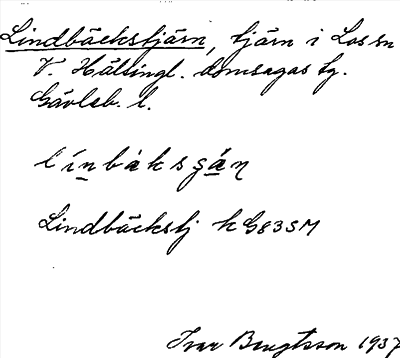 Lindbäckstjärn, tjärn i Los sn
V. Hälsingl. domsagas tg.
Gävleb. l.
línbàksşän
Lindbäckstj k G83SM
Ivar Bengtsson 1937